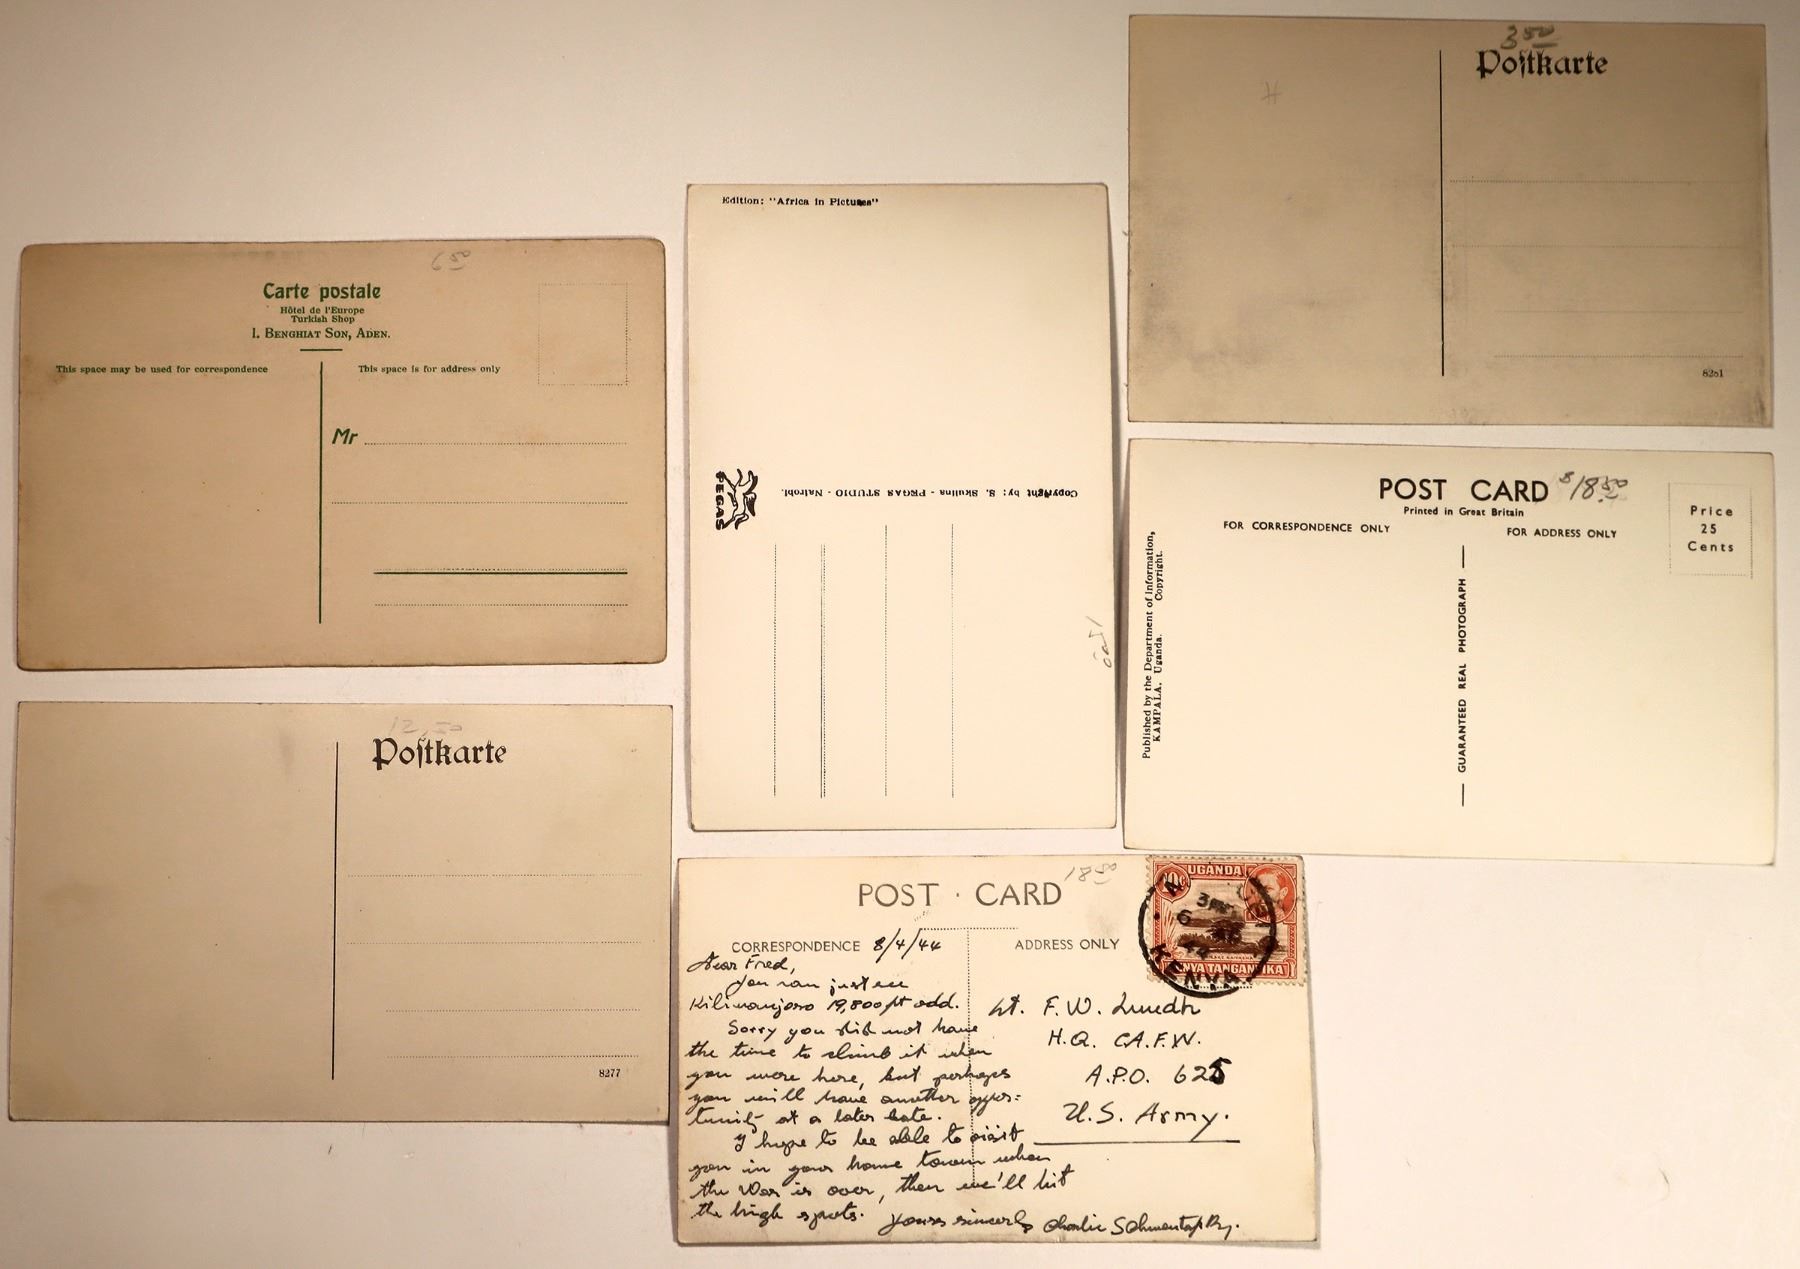 6 50
Carte postale
Hôtel de l'Europe
Turkish Shop
I. BENGHIAT SON, ADEN.
This space may be used for correspondence
This space is for address only
Mr
12,50
Poſtkarte
8277
Edition: "Africa in Pictures"
PEGAS
Copyright by: S. Skulina - PEGAS STUDIO - Nairobi.
3 50
Poſtkarte
8201
POST CARD
$18.50
Printed in Great Britain
FOR CORRESPONDENCE ONLY
FOR ADDRESS ONLY
Price
25
Cents
Published by the Department of Information,
KAMPALA. Uganda. Copyright.
GUARANTEED REAL PHOTOGRAPH
POST · CARD
18 50
CORRESPONDENCE 8/4/44
ADDRESS ONLY
Dear Fred,
You can just see
Kilimanjoro 19,800 ft odd.
Sorry you did not have
the time to climb it when
you were here, but perhaps
you will have another oppor:
tunity at a later date.
I hope to be able to visit
you in your home town when
the War is over, then we'll hit
the high spots.
Yours sincerely Charlie
Lt. F.W.
H.Q. C.A.F.W.
A.P.O. 625
U.S. Army.
UGANDA
10c
KENYA TANGANYIKA
3 PM
6
44
KENYA